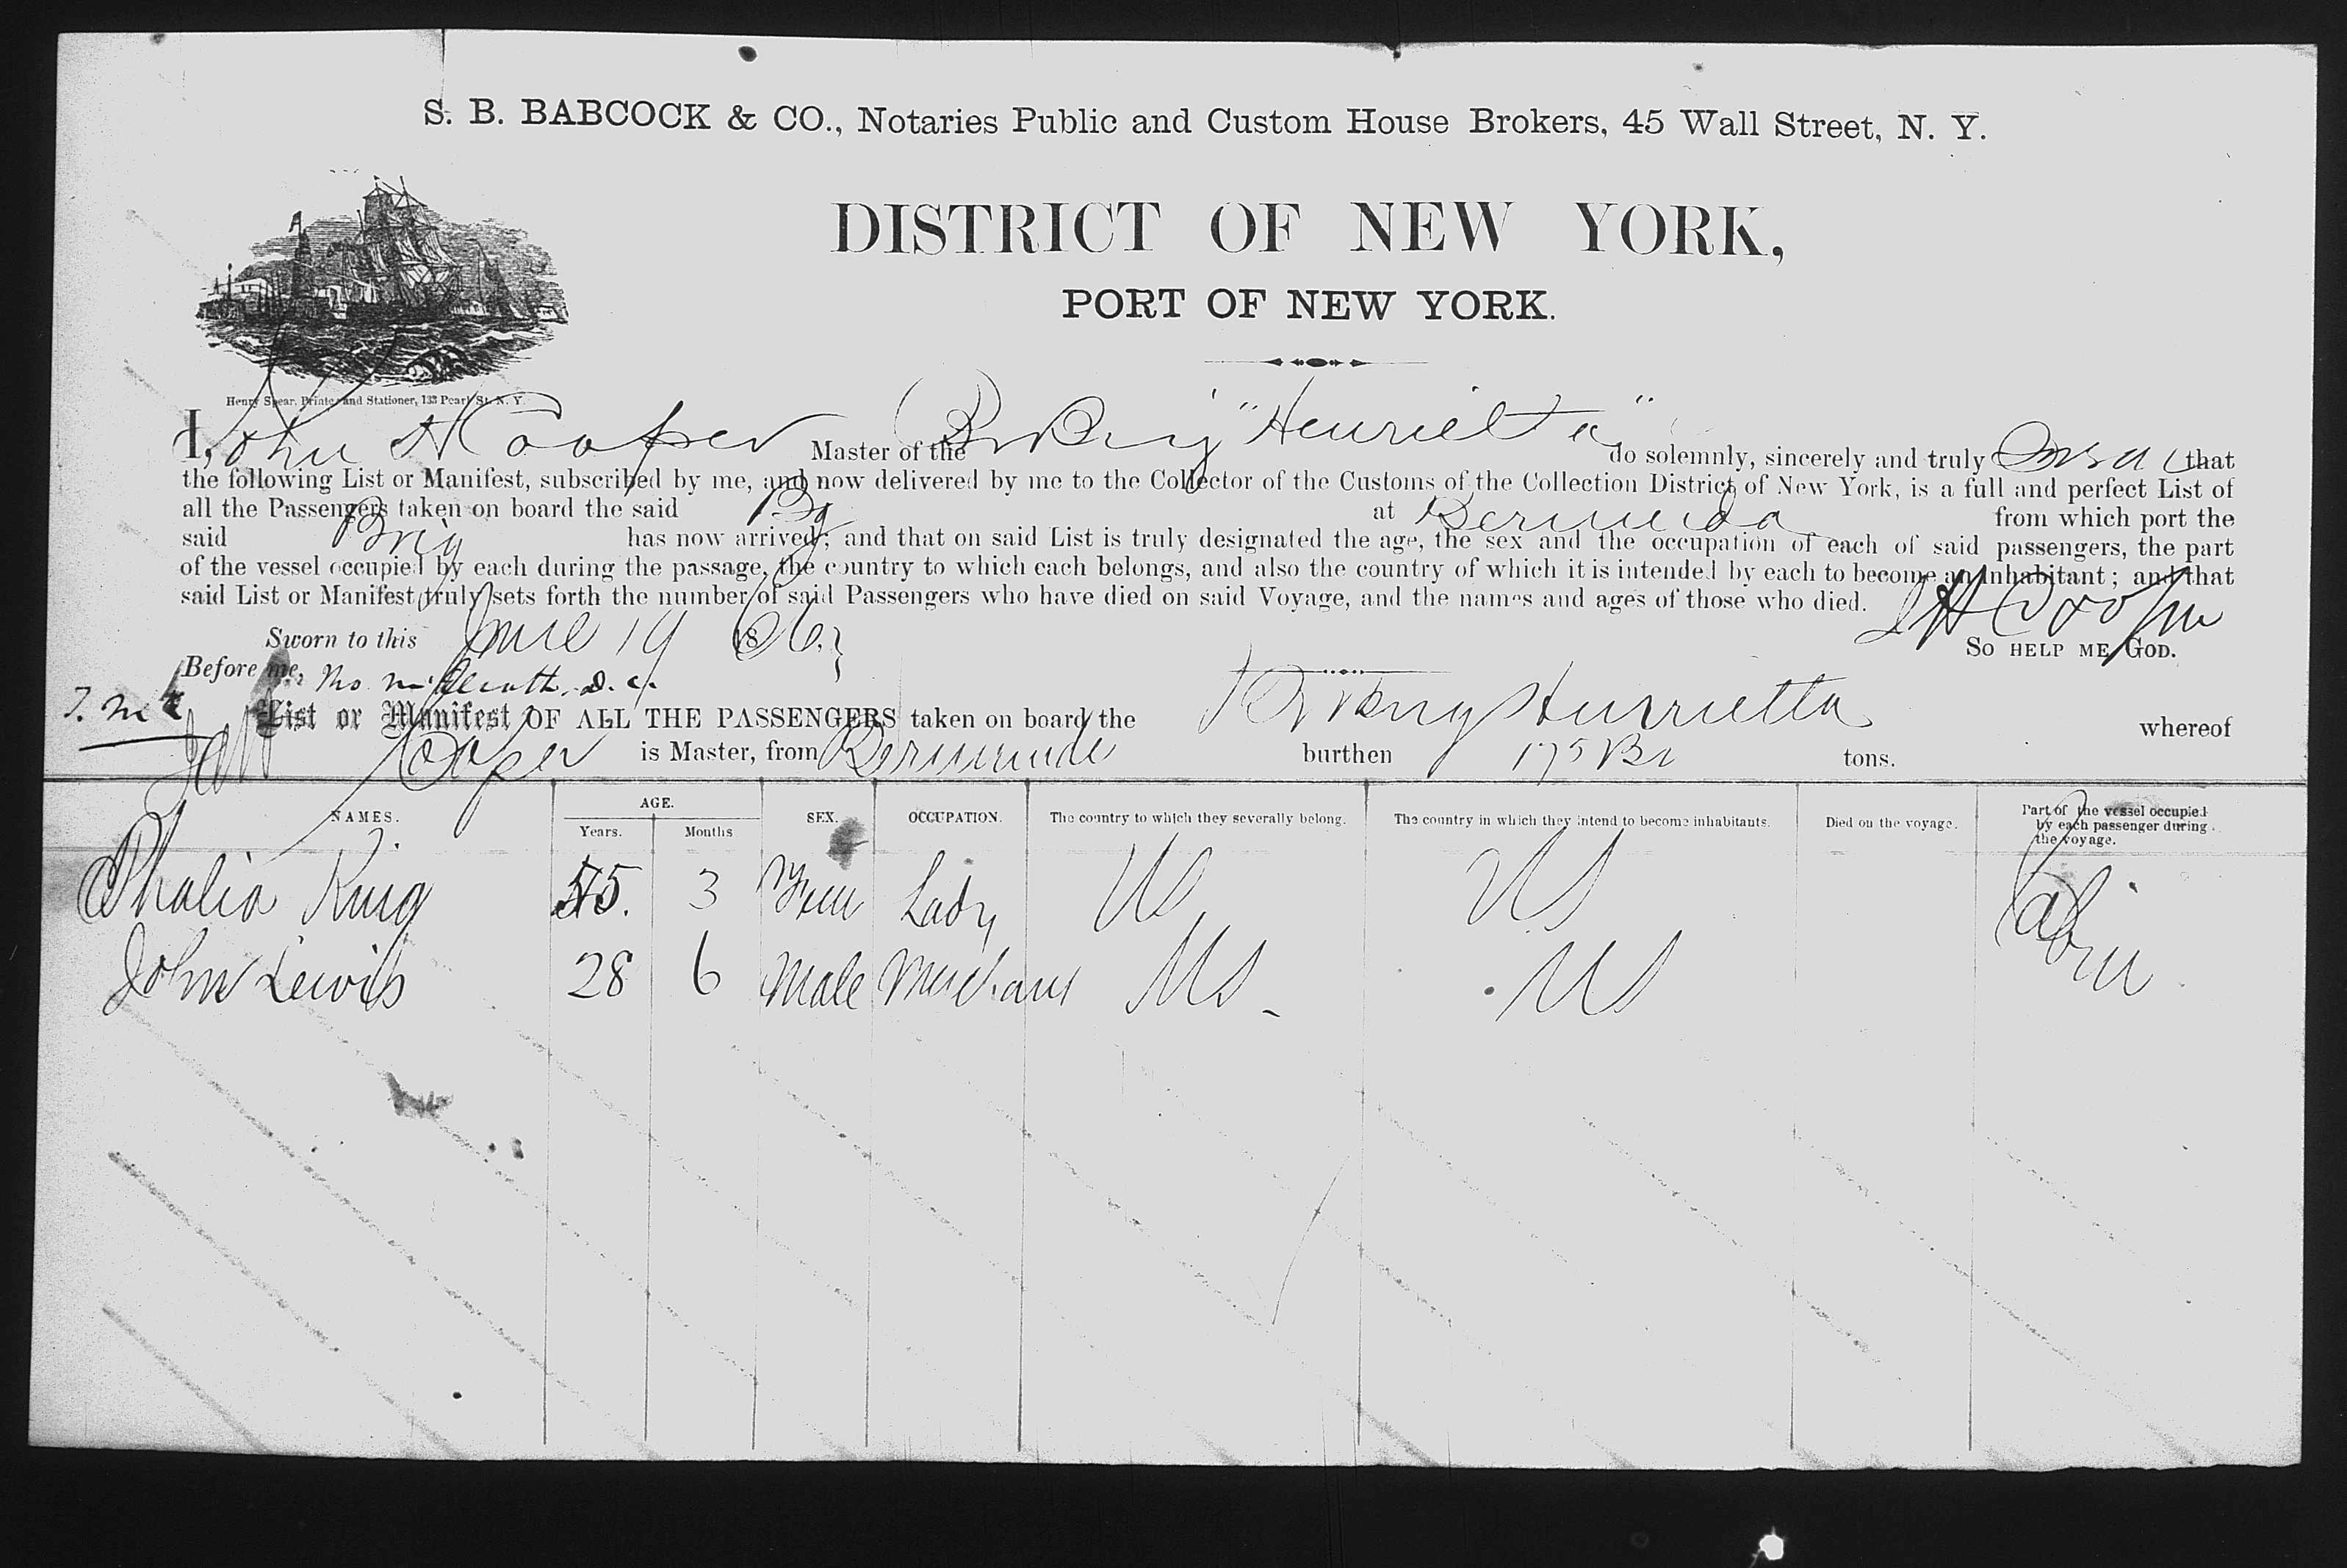 S. B. BABCOCK & CO., Notaries Public and Custom House Brokers, 45 Wall Street, N. Y.
DISTRICT OF NEW YORK,
PORT OF NEW YORK.
Henry Spear, Printer and Stationer, 133 Pearl St. N. Y.
I, John H Cooper Master of the Br Brig "Henrietta" do solemnly, sincerely and truly that
the following List or Manifest, subscribed by me, and now delivered by me to the Collector of the Customs of the Collection District of New York, is a full and perfect List of
all the Passengers taken on board the said Bg at Bermuda from which port the
said Brig has now arrived; and that on said List is truly designated the age, the sex and the occupation of each of said passengers, the part
of the vessel occupied by each during the passage, the country to which each belongs, and also the country of which it is intended by each to become an Inhabitant; and that
said List or Manifest truly sets forth the number of said Passengers who have died on said Voyage, and the names and ages of those who died. J H Cooper
Sworn to this June 19 1866. SO HELP ME GOD.
Before me,
List or Manifest OF ALL THE PASSENGERS taken on board the Br Brig Henrietta whereof
Cooper is Master, from Bermuda burthen 175 Br tons.
NAMES. AGE. Years. Months SEX. OCCUPATION. The country to which they severally belong. The country in which they intend to become inhabitants. Died on the voyage. Part of the vessel occupied by each passenger during the voyage.
Thalia King 45. 3 Fem Lady US US Cabin
John Lewis 28 6 Male Merchant US US